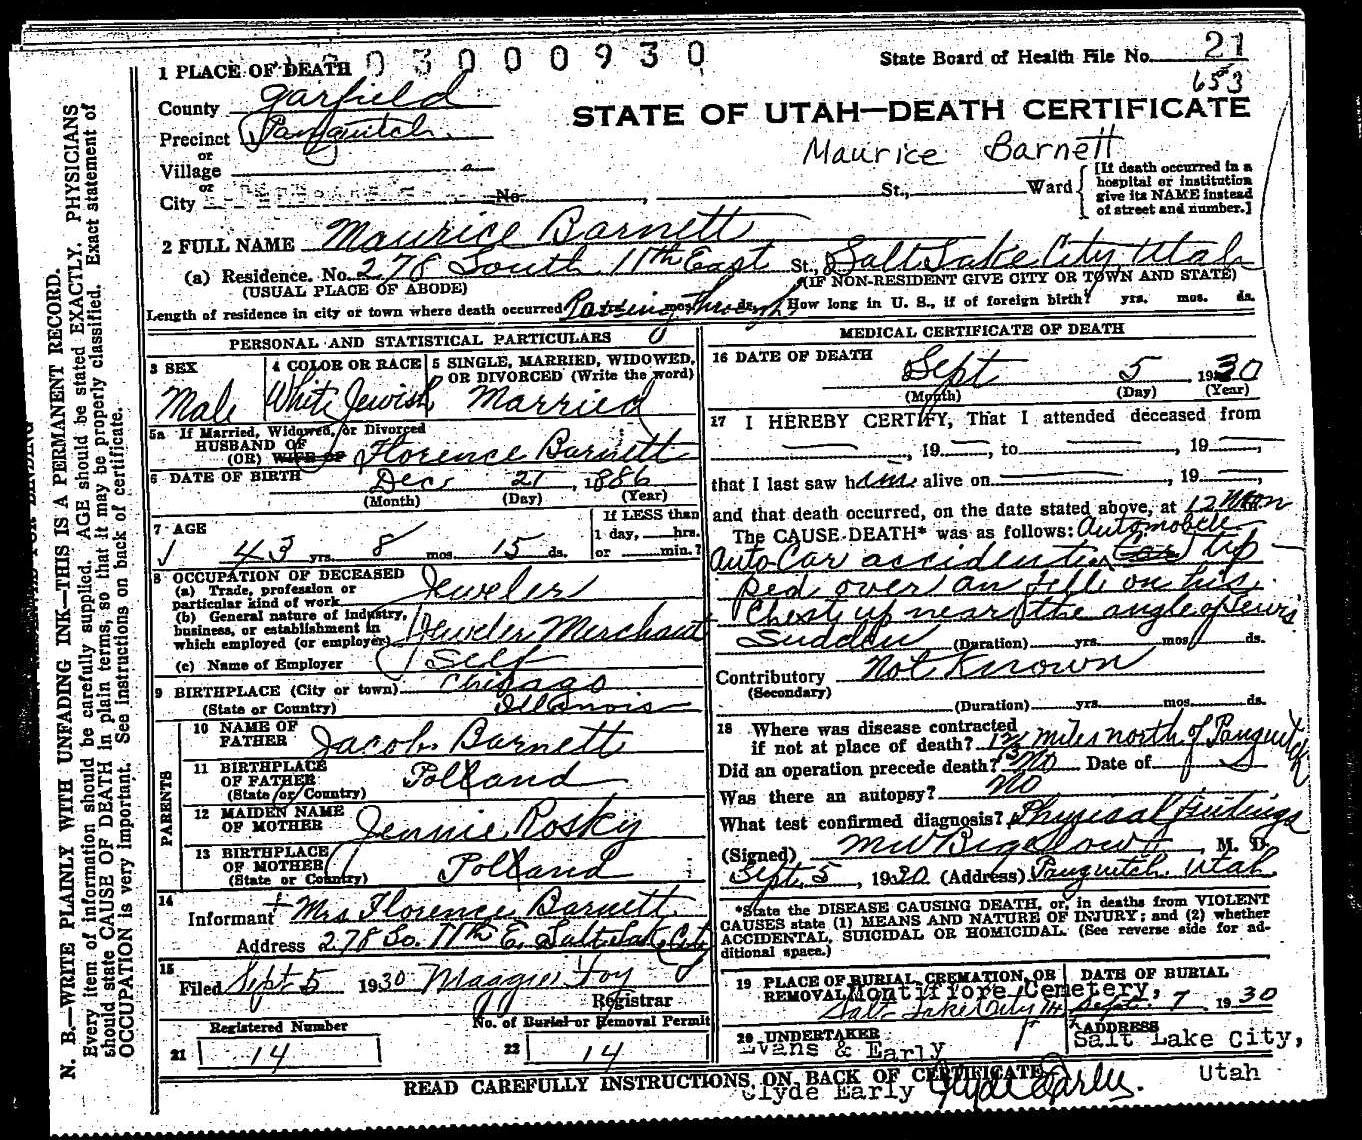 3000930
State Board of Health File No. 21
653
1 PLACE OF DEATH
County Garfield
STATE OF UTAH—DEATH CERTIFICATE
Precinct Panguitch
Maurice Barnett
or
Village
or
City No. , St., Ward
[If death occurred in a
hospital or institution
give its NAME instead
of street and number.]
2 FULL NAME Maurice Barnett
(a) Residence. No. 278 South 11th East St., Salt Lake City, Utah
(USUAL PLACE OF ABODE) (IF NON-RESIDENT GIVE CITY OR TOWN AND STATE)
Length of residence in city or town where death occurred Passing Through yrs. mos. ds. How long in U. S., if of foreign birth? yrs. mos. ds.
PERSONAL AND STATISTICAL PARTICULARS
3 SEX
Male
4 COLOR OR RACE
White Jewish
5 SINGLE, MARRIED, WIDOWED,
OR DIVORCED (Write the word)
Married
5a If Married, Widowed, or Divorced
HUSBAND OF
(OR) WIFE OF Florence Barnett
6 DATE OF BIRTH Dec 21, 1886
(Month) (Day) (Year)
7 AGE
43 yrs. 8 mos. 15 ds.
If LESS than
1 day, hrs.
or min.?
8 OCCUPATION OF DECEASED
(a) Trade, profession or
particular kind of work Jeweler
(b) General nature of industry,
business, or establishment in
which employed (or employer) Jeweler Merchant
(c) Name of Employer Self
9 BIRTHPLACE (City or town) Chicago
(State or Country) Illinois
PARENTS
10 NAME OF
FATHER Jacob Barnett
11 BIRTHPLACE
OF FATHER Polland
(State or Country)
12 MAIDEN NAME
OF MOTHER Jennie Rosky
13 BIRTHPLACE
OF MOTHER Polland
(State or Country)
14
Informant Mrs Florence Barnett
Address 278 So. 11th E. Salt Lake City
15
Filed Sept 5 1930 Maggie Foy
Registrar
Registered Number
21 14
No. of Burial or Removal Permit
22 14
MEDICAL CERTIFICATE OF DEATH
16 DATE OF DEATH
Sept 5, 1930
(Month) (Day) (Year)
17 I HEREBY CERTIFY, That I attended deceased from
, 19 , to , 19 ,
that I last saw him alive on , 19 ,
and that death occurred, on the date stated above, at 12 Noon
The CAUSE DEATH* was as follows: Automobile
Auto Car accident (Car) tip
ped over an fell on his
Chest up near the angle of
Sudden (Duration) yrs. mos. ds.
Contributory Not Known
(Secondary)
(Duration) yrs. mos. ds.
18 Where was disease contracted
if not at place of death? miles north of Panguitch
Did an operation precede death? No Date of
Was there an autopsy? No
What test confirmed diagnosis? Physical findings
(Signed) M W Bigelow, M. D.
Sept. 5, 1930 (Address) Panguitch, Utah
*State the DISEASE CAUSING DEATH, or, in deaths from VIOLENT
CAUSES state (1) MEANS AND NATURE OF INJURY; and (2) whether
ACCIDENTAL, SUICIDAL OR HOMICIDAL. (See reverse side for ad-
ditional space.)
19 PLACE OF BURIAL, CREMATION, OR
REMOVAL Montifiore Cemetery,
Salt Lake City Ut
DATE OF BURIAL
Sept 7 1930
20 UNDERTAKER
Evans & Early
ADDRESS
Salt Lake City,
Utah
READ CAREFULLY INSTRUCTIONS, ON BACK OF CERTIFICATE
Clyde Early Clyde Early.
N. B.—WRITE PLAINLY WITH UNFADING INK—THIS IS A PERMANENT RECORD.
Every item of information should be carefully supplied. AGE should be stated EXACTLY. PHYSICIANS
should state CAUSE OF DEATH in plain terms, so that it may be properly classified. Exact statement of
OCCUPATION is very important. See instructions on back of certificate.